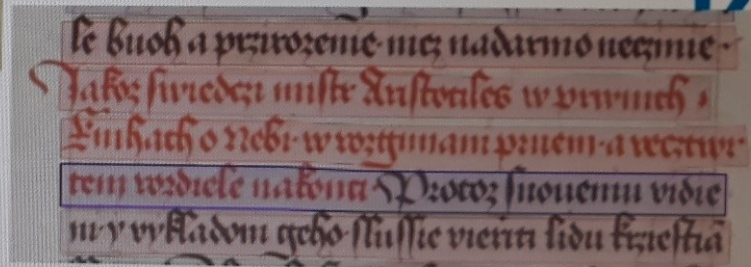 se buoh a przirozenie · nicz nadarmo neczinie ·
Jakoz swiedczi mistr Aristotiles w prwnich ·
Knihach o Nebi · w rozgimani prwem · a wecztwr
tem rozdiele nakonci · Protoz snovemu vidie
ni y vykladom geho slussie vieriti lidu krzestiā